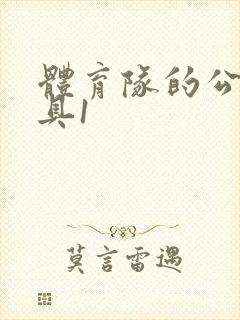 體育隊的公
具1
莫言雷遇